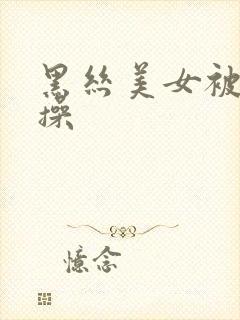 黑丝美女被
操
憶念